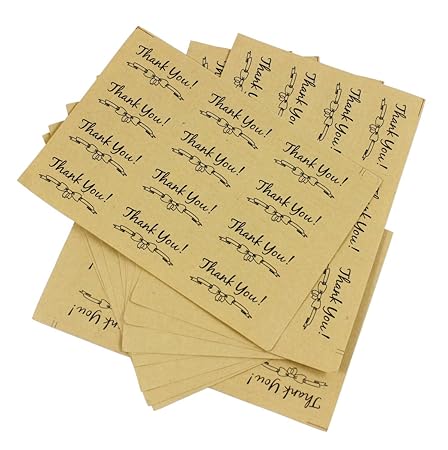 Thank You!
Thank You!
Thank You!
Thank You!
Thank You!
Thank You!
Thank You!
Thank You!
Thank You!
Thank You!
Thank You!
Thank You!
Thank
Thank You!
Thank You!
Thank You!
You!
Thank You!
You!
You!
Thank You!